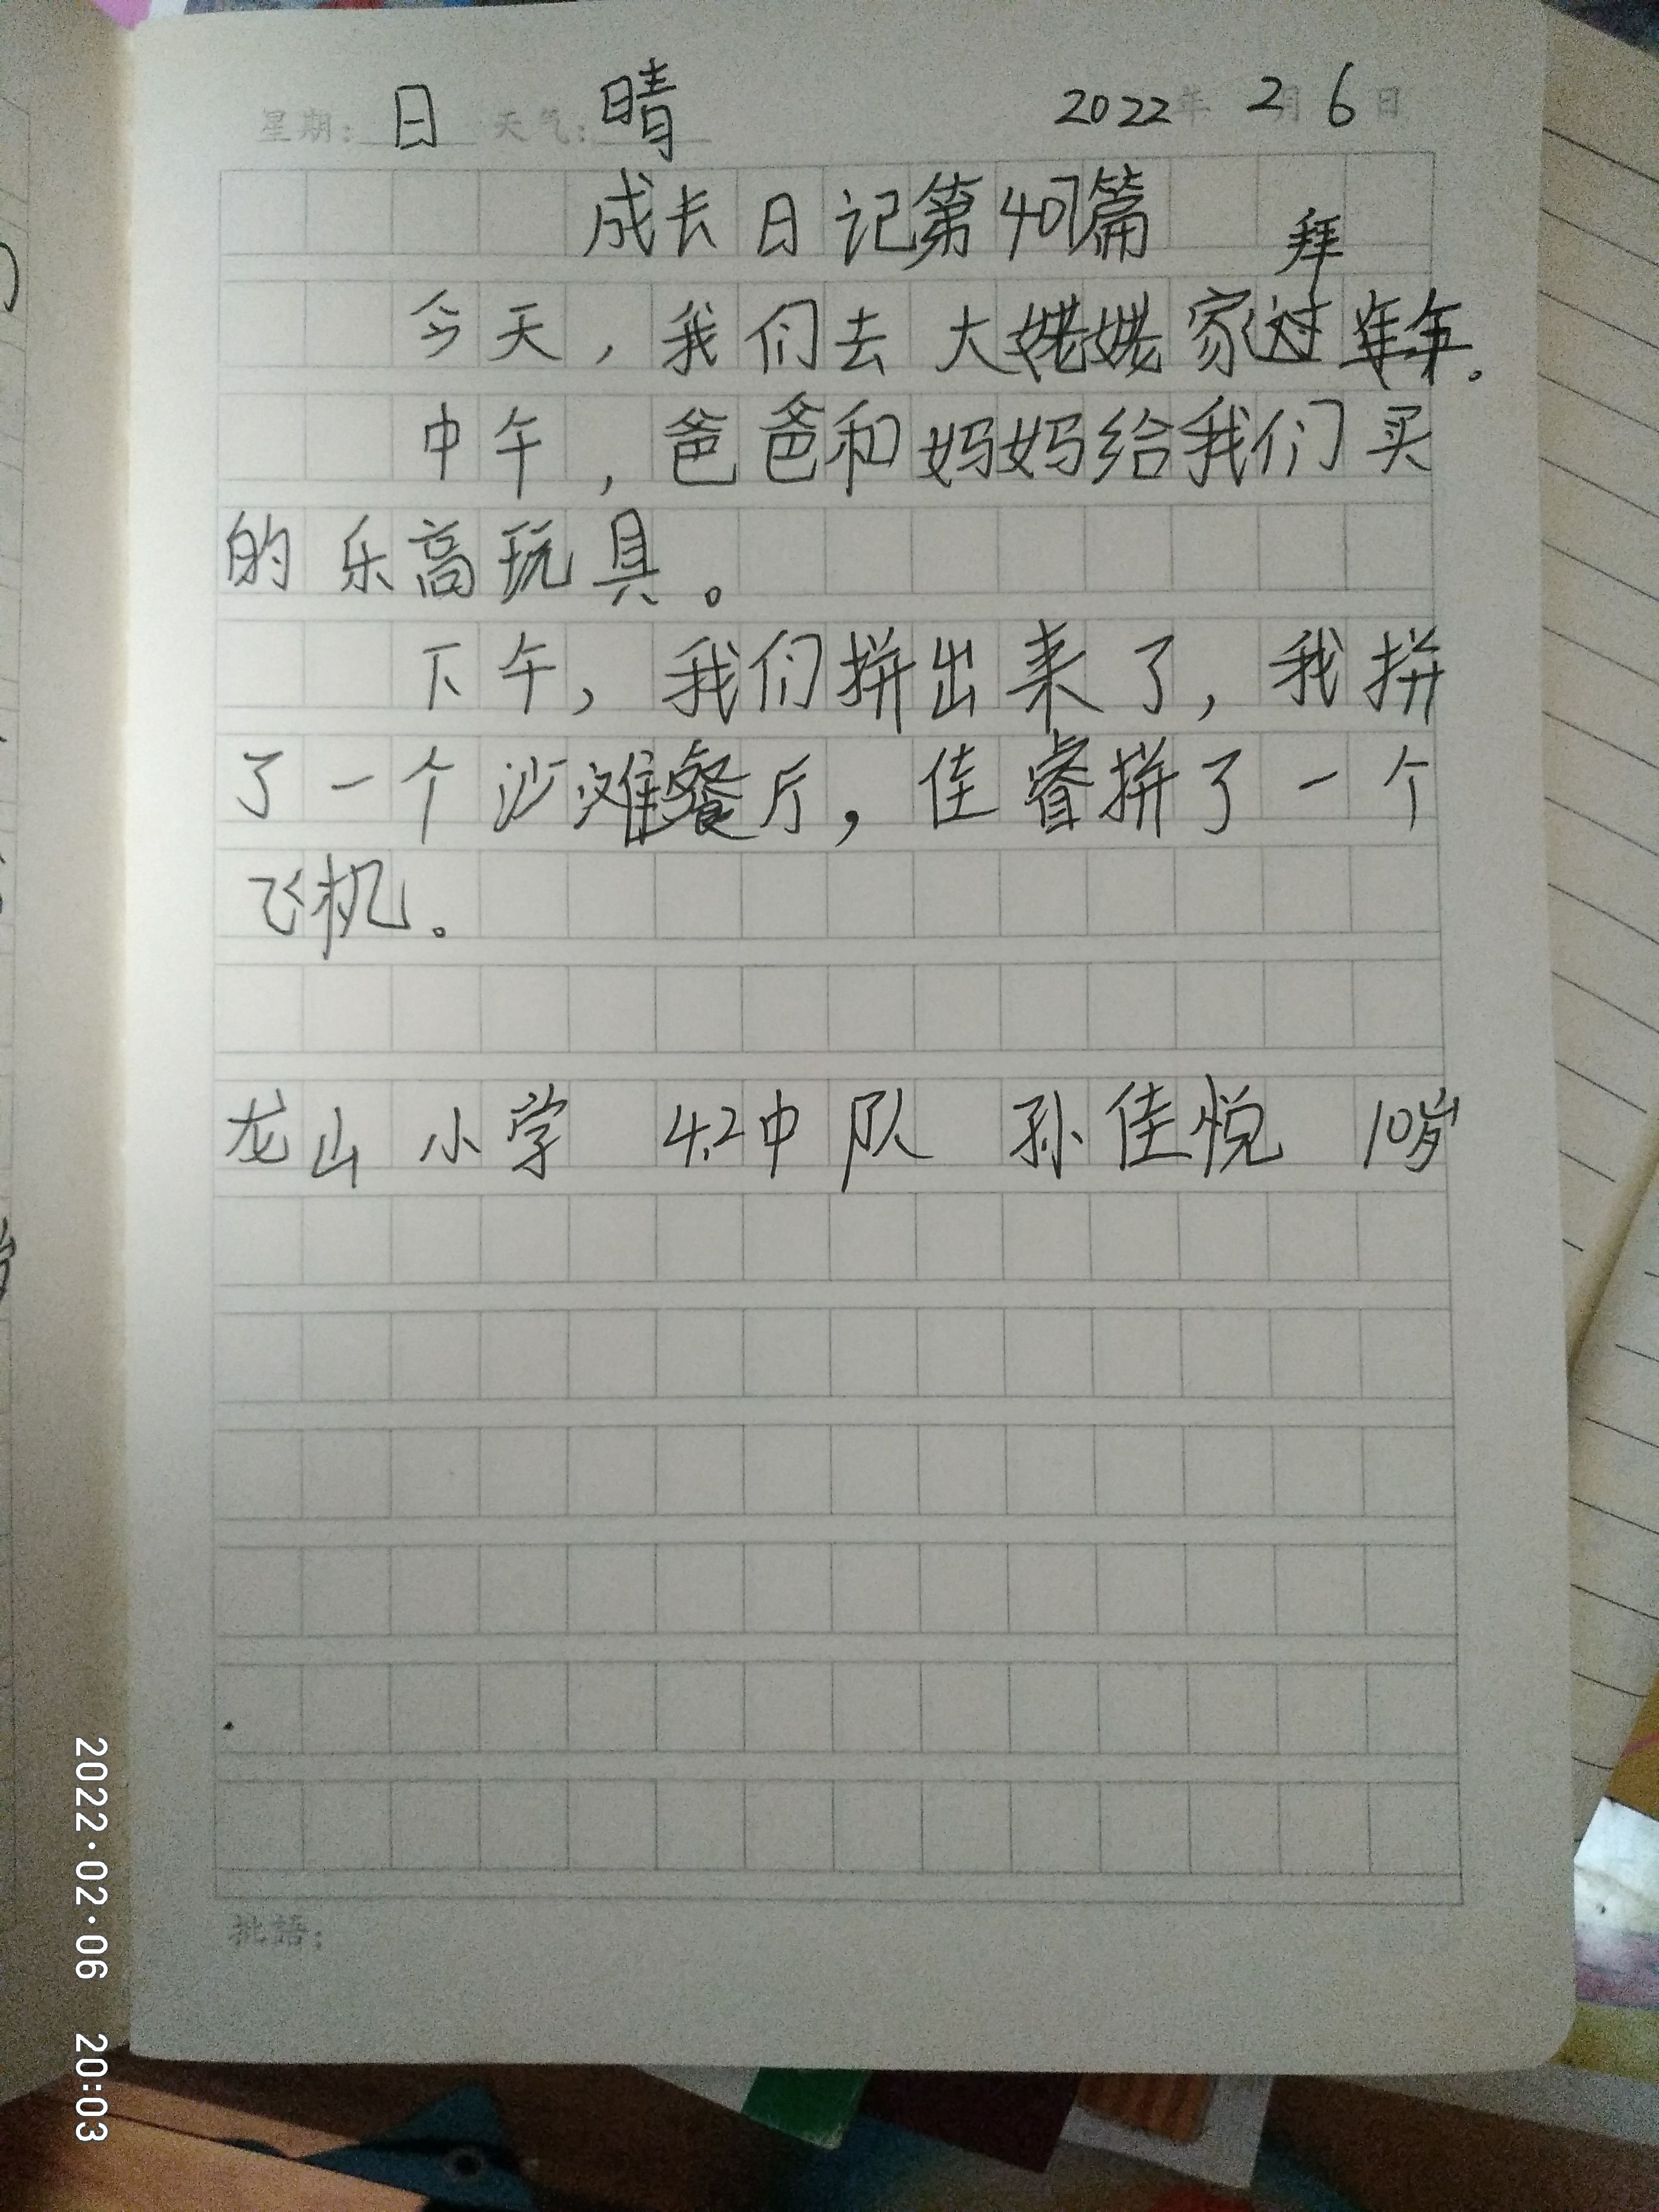 星期: 日 天气: 晴 2022年 2月 6日
成长日记第407篇
拜
今天，我们去大姥姥家过年。
中午，爸爸和妈妈给我们买
的乐高玩具。
下午，我们拼出来了，我拼
了一个沙滩餐厅，佳睿拼了一个
飞机。
龙山小学 4.2中队 孙佳悦 10岁
批語：
2022·02·06 20:03